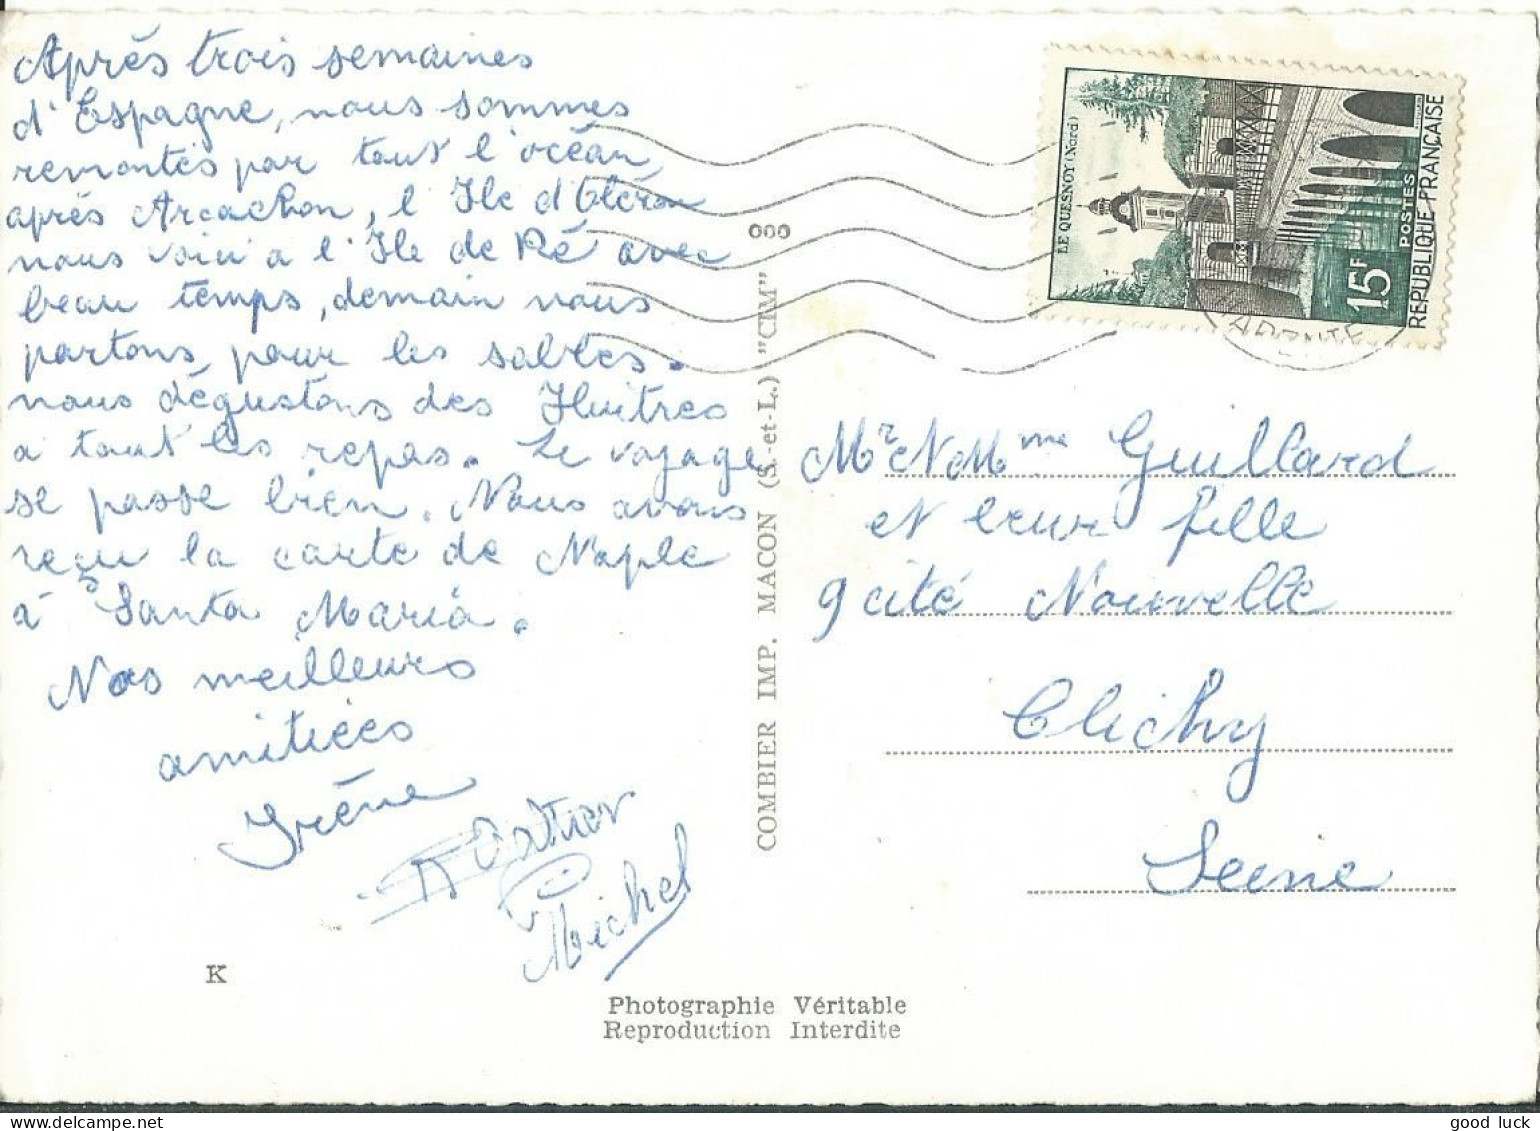 Après trois semaines
d'Espagne, nous sommes
remontés par tout l'océan,
après Arcachon, l'Ile d'Oléron
nous voici a l'Ile de Ré avec
beau temps, demain nous
partons pour les sables.
nous dégustons des Huitres
a tout les repas. Le voyage
se passe bien. Nous avons
reçu la carte de Naple
à Santa Maria.
Nos meilleurs
amitiées
Irène
Michel
K
COMBIER IMP. MACON (S.-et-L.) "CIM"
Photographie Véritable
Reproduction Interdite
LE QUESNOY (Nord)
15F
POSTES
REPUBLIQUE FRANÇAISE
Mr et Mme Guillard
et leur fille
9 cité Nouvelle
Clichy
Seine
good luck